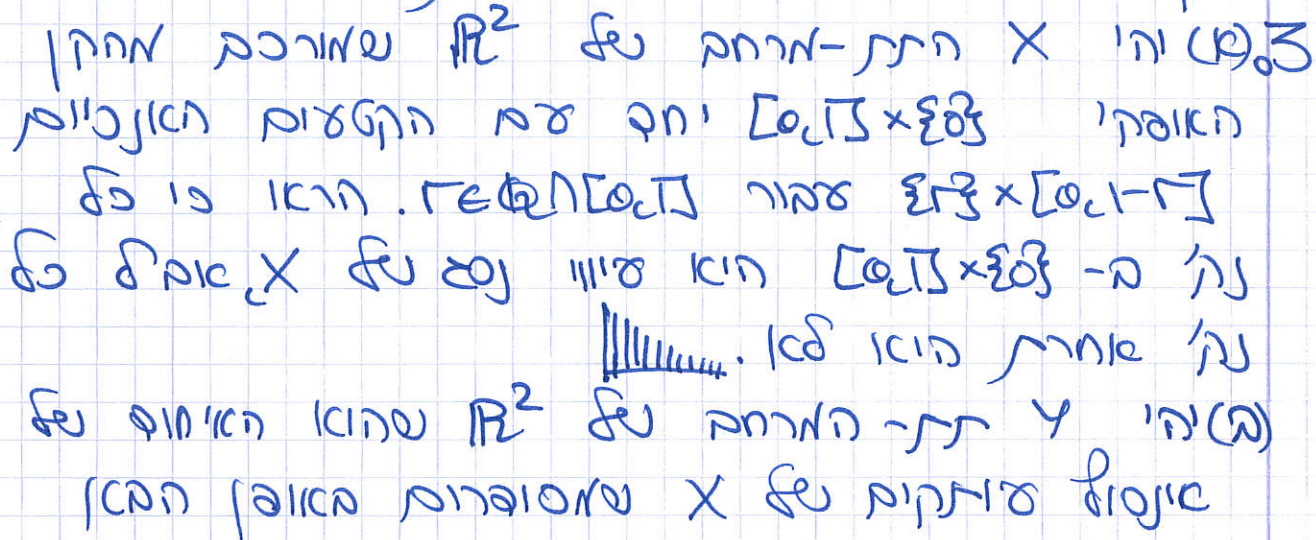 3.(א) יהי X התת-מרחב של ℝ² שמורכב מהקו
האופקי [0,1]×{0} יחד עם הקטעים האנכיים
{r}×[0,1-r] עבור r∈ℚ∩[0,1]. הראו כי כל
נק' ב- [0,1]×{0} היא עיוות נסג של X, אבל כל
נק' אחרת היא לא.
(ב) יהי Y תת-המרחב של ℝ² שהוא האיחוד של
אינסוף עותקים של X שמסודרים באופן הבא